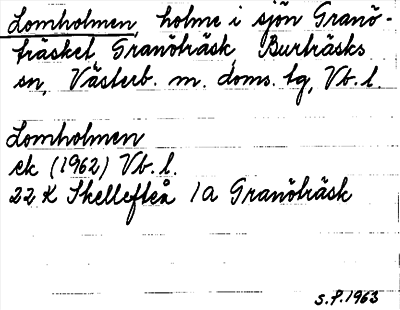 Lomholmen, holme i sjön Granö-
träsket, Granöträsk, Burträsks
sn, Västerb. m. doms. tg, Vb. l.
Lomholmen
ek (1962) Vb. l.
22 K Skellefteå 1a Granöträsk
S.P. 1963